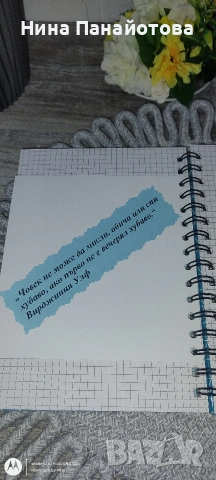 Нина Панайотова
"Човек не може да мисли, обича или спи
хубаво, ако първо не е вечерял хубаво."
Вирджиния Улф
BAZAR